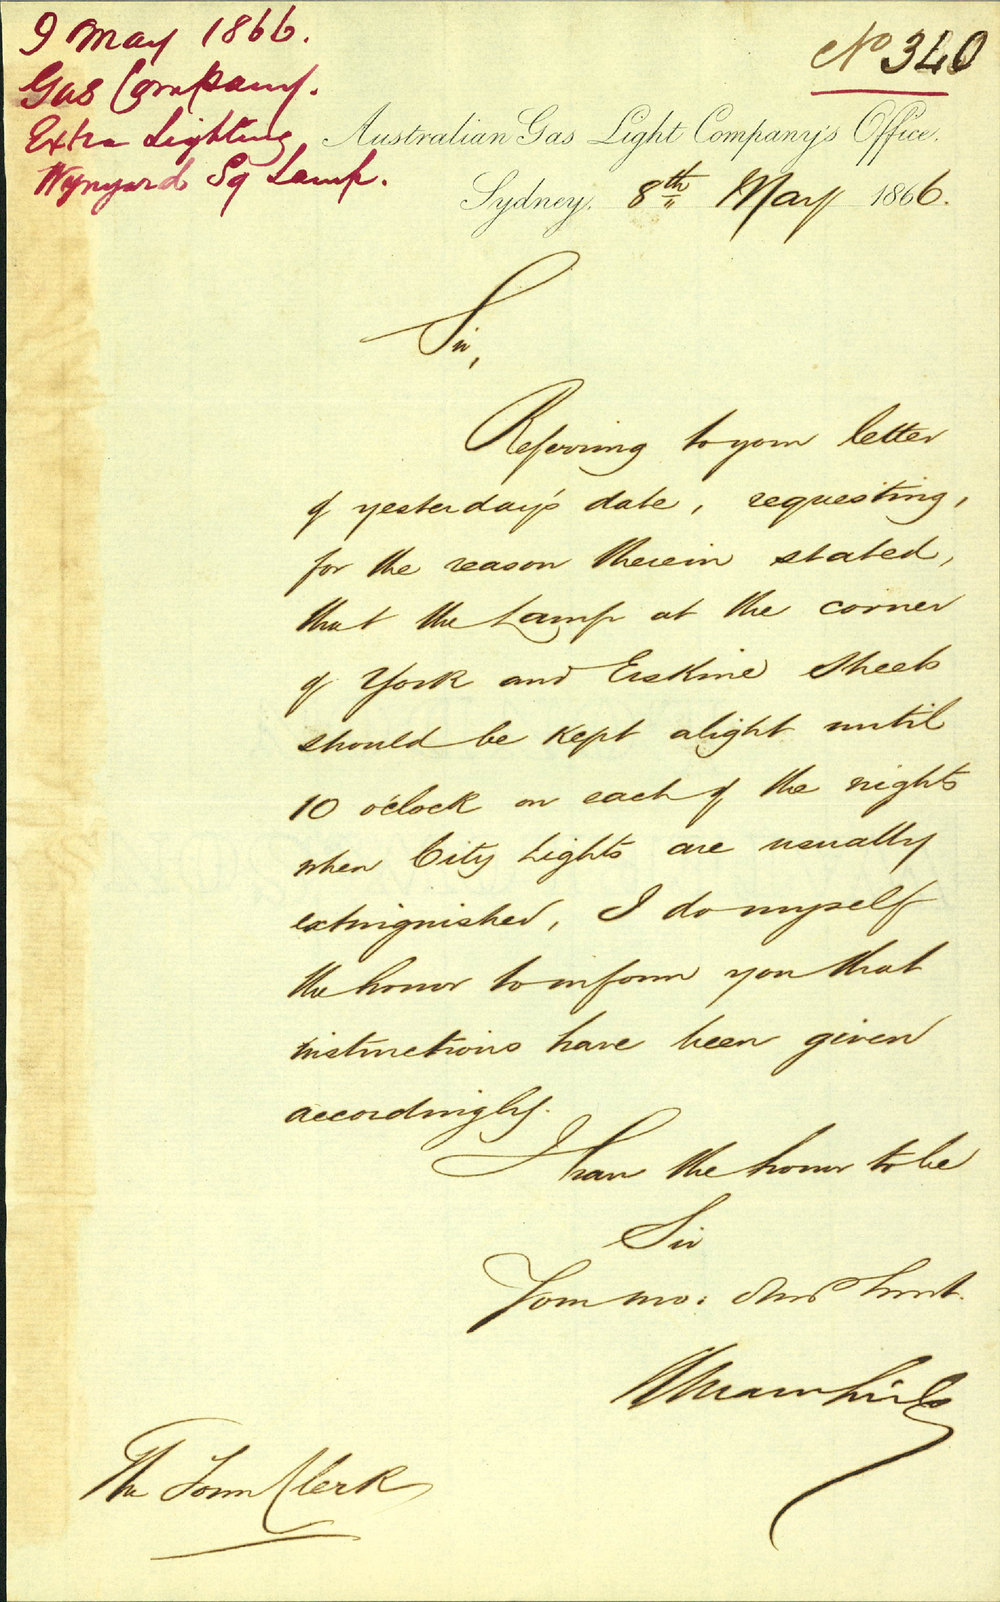 9 May 1866.
Gas Company.
Extra Lighting
Wynyard Sq Lamp.
No 340
Australian Gas Light Company's Office.
Sydney, 8th May 1866.
Sir,
Referring to your letter
of yesterday's date, requesting,
for the reason therein stated,
that the Lamp at the corner
of York and Erskine Streets
should be kept alight until
10 o'clock on each of the nights
when City Lights are usually
extinguished, I do myself
the honor to inform you that
instructions have been given
accordingly.
I have the honor to be
Sir
Your mo: Obed Servt.
The Town Clerk